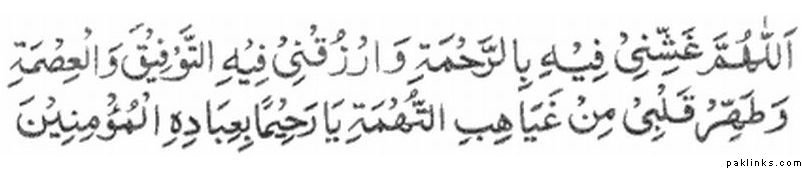 اَللّٰهُمَّ غَشِّنِیْ فِیْهِ بِالرَّحْمَةِ وَارْزُقْنِیْ فِیْهِ التَّوْفِیْقَ وَالْعِصْمَةِ
وَطَهِّرْ قَلْبِیْ مِنْ غَیَاهِبِ التُّهْمَةِ یَا رَحِیْمًا بِعِبَادِهِ الْمُؤْمِنِیْنَ
paklinks.com